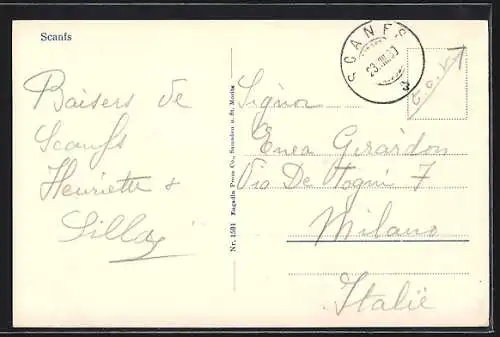 Scanfs
SCANFS
23.VIII.30
Baisers de
Scanfs
Henriette &
Lilla
Signor
Enea Girardon
Via De Togni 7
Milano
Italie
Nr. 1581 Engadin Press Co., Samaden u. St. Moritz